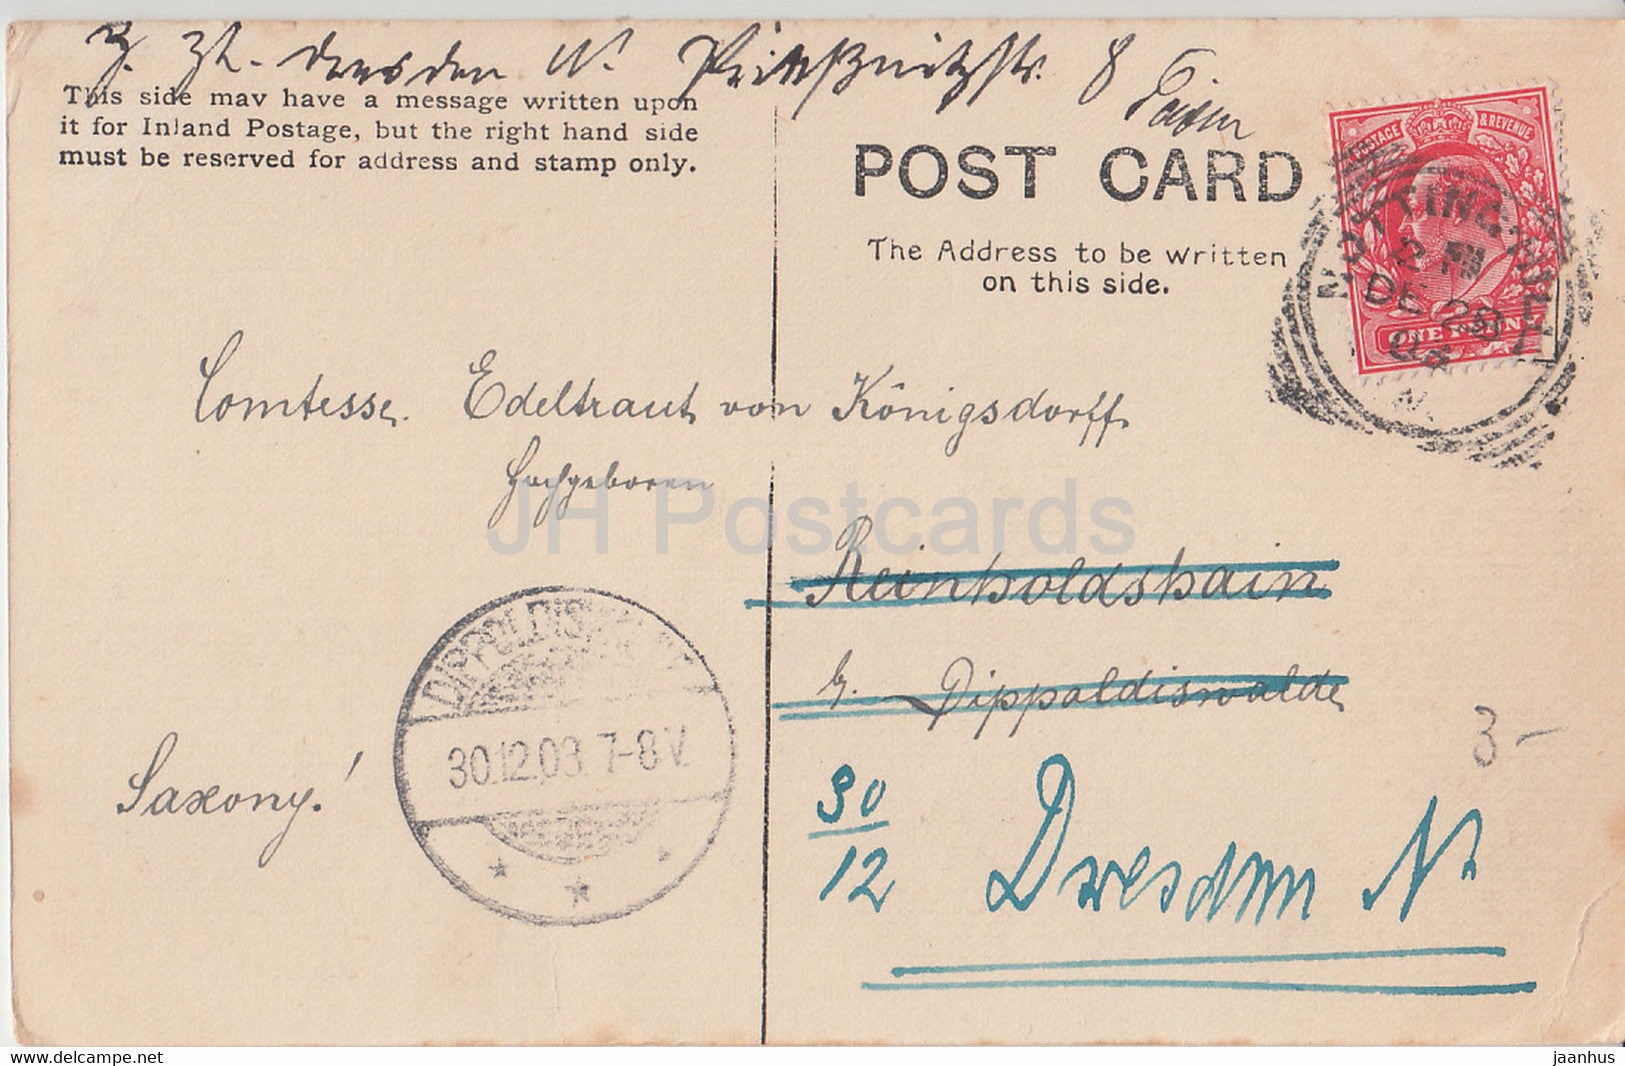 z. Zt. Dresden N. Prießnitzstr. 8
This side may have a message written upon
it for Inland Postage, but the right hand side
must be reserved for address and stamp only.
POST CARD
The Address to be written
on this side.
POSTAGE & REVENUE
ONE PENNY
NOTTING HILL
2 PM
DE 28
03
N.
Comtesse. Edeltraut von Königsdorff
Hochgeboren
JH Postcards
Reinholdshain
b. Dippoldiswalde
Saxony!
DIPPOLDISWALDE
30.12.03. 7-8 V.
3 -
30/12
Dresden N.
www.delcampe.net
jaanhus